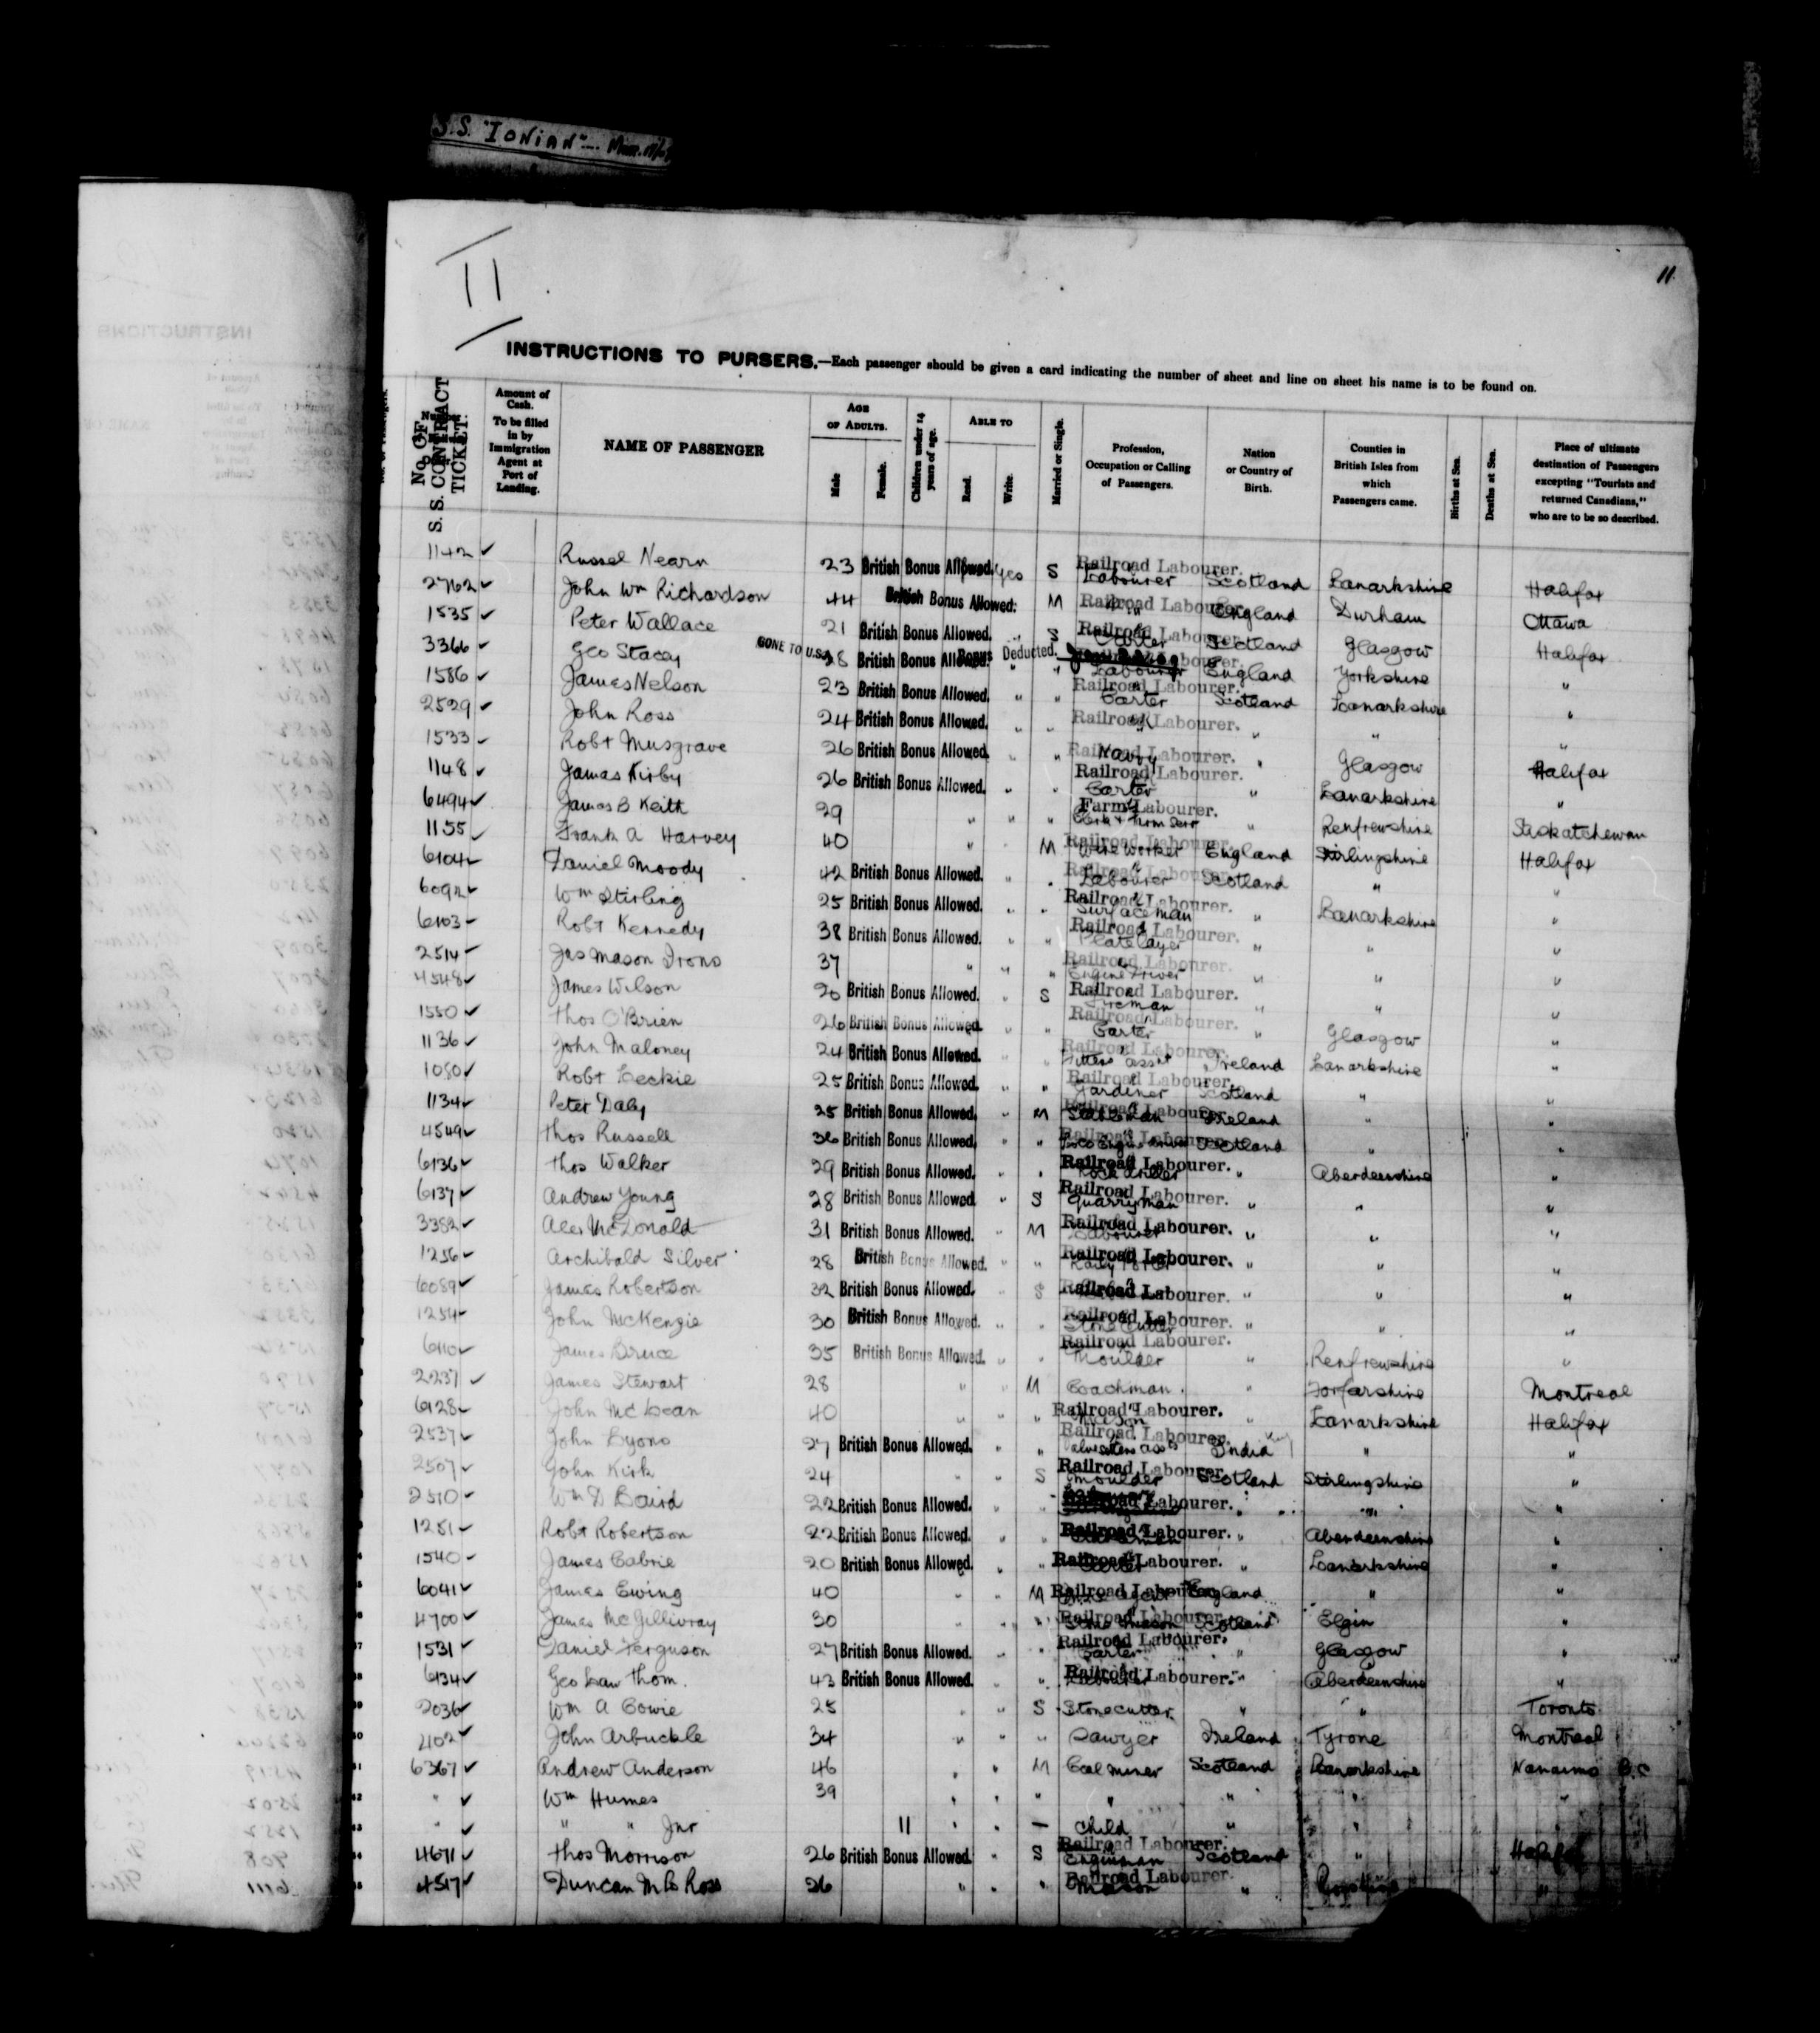 S.S. "IONIAN"
11
11
INSTRUCTIONS TO PURSERS.—Each passenger should be given a card indicating the number of sheet and line on sheet his name is to be found on.
No. OF S. S. CONTRACT TICKET. Amount of Cash. To be filled in by Immigration Agent at Port of Landing. NAME OF PASSENGER AGE OF ADULTS. Male Female. Children under 14 years of age. ABLE TO Read. Write. Married or Single. Profession, Occupation or Calling of Passengers. Nation or Country of Birth. Counties in British Isles from which Passengers came. Births at Sea. Deaths at Sea. Place of ultimate destination of Passengers excepting "Tourists and returned Canadians," who are to be so described.
1142 ✓ Russel Nearn 23 British Bonus Allowed. Yes S Railroad Labourer. Labourer Scotland Lanarkshire Halifax
2762 ✓ John Wm Richardson 44 British Bonus Allowed. M Railroad Labourer. England Durham Ottawa
1535 ✓ Peter Wallace 21 British Bonus Allowed. " S Railroad Labourer. Carter Scotland Glasgow Halifax
3366 ✓ Geo Stacey GONE TO U.S.A. 28 British Bonus Allowed. Bonus Deducted. " Labourer England Yorkshire "
1586 ✓ James Nelson 23 British Bonus Allowed. " " Railroad Labourer. Carter Scotland Lanarkshire "
2529 ✓ John Ross 24 British Bonus Allowed. " " Railroad Labourer. " " " "
1533 ✓ Robt Musgrave 26 British Bonus Allowed. " " Railroad Labourer. Navvy " Glasgow Halifax
1148 ✓ James Kirby 26 British Bonus Allowed. " " Railroad Labourer. Carter " Lanarkshire "
6494 ✓ James B Keith 29 " " " Farm Labourer. " Renfrewshire Saskatchewan
1155 ✓ Frank A Harvey 40 " M Railroad Labourer. Wire Worker England Stirlingshire Halifax
6104 ✓ Daniel Moody 42 British Bonus Allowed. " " Railroad Labourer. Labourer Scotland " "
6092 ✓ Wm Stirling 25 British Bonus Allowed. " " Railroad Labourer. Surfaceman " Lanarkshire "
6103 ✓ Robt Kennedy 38 British Bonus Allowed. " " Railroad Labourer. Platelayer " " "
2514 ✓ Jas Mason Irons 37 " " " Railroad Labourer. Engine Driver " " "
4548 ✓ James Wilson 20 British Bonus Allowed. " S Railroad Labourer. Fireman " " "
1550 ✓ Thos O'Brien 26 British Bonus Allowed. " " Railroad Labourer. Carter " Glasgow "
1136 ✓ John Maloney 24 British Bonus Allowed. " " Railroad Labourer. Fitters asst Ireland Lanarkshire "
1050 ✓ Robt Leckie 25 British Bonus Allowed. " " Railroad Labourer. Gardiner Scotland " "
1134 ✓ Peter Daly 25 British Bonus Allowed. " M Railroad Labourer. Ireland " "
4549 ✓ Thos Russell 36 British Bonus Allowed. " " Railroad Labourer. Scotland " "
6136 ✓ Thos Walker 29 British Bonus Allowed. " " Railroad Labourer. " Aberdeenshire "
6137 ✓ Andrew Young 28 British Bonus Allowed. " S Railroad Labourer. Quarryman " " "
3382 ✓ Alex McDonald 31 British Bonus Allowed. " M Railroad Labourer. Labourer " " "
1256 ✓ Archibald Silver 28 British Bonus Allowed. " " Railroad Labourer. " " "
6089 ✓ James Robertson 32 British Bonus Allowed. " S Railroad Labourer. " " "
1254 ✓ John McKenzie 30 British Bonus Allowed. " " Railroad Labourer. Stone Cutter " " "
6110 ✓ James Bruce 35 British Bonus Allowed. " " Railroad Labourer. Moulder " Renfrewshire "
2237 ✓ James Stewart 28 " " M Coachman. " Forfarshire Montreal
6128 ✓ John McLean 40 " " " Railroad Labourer. Mason " Lanarkshire Halifax
2537 ✓ John Byons 27 British Bonus Allowed. " " Railroad Labourer. India " "
2507 ✓ John Kirk 24 " " S Railroad Labourer. Moulder Scotland Stirlingshire "
2510 ✓ Wm D Baird 22 British Bonus Allowed. " " Railroad Labourer. " " "
1251 ✓ Robt Robertson 22 British Bonus Allowed. " " Railroad Labourer. " Aberdeenshire "
1540 ✓ James Cabrie 20 British Bonus Allowed. " " Railroad Labourer. Carter " Lanarkshire "
6041 ✓ James Ewing 40 " " M Railroad Labourer. England " "
4700 ✓ James McGillivray 30 " " " Railroad Labourer. Stone Mason Scotland Elgin "
1531 ✓ Daniel Ferguson 27 British Bonus Allowed. " " Railroad Labourer. Carter " Glasgow "
6134 ✓ Geo Law Thom. 43 British Bonus Allowed. " " Railroad Labourer. Labourer " Aberdeenshire "
2036 ✓ Wm A Cowie 25 " " S Stonecutter " " Toronto
2102 ✓ John Arbuckle 34 " " " Sawyer Ireland Tyrone Montreal
6367 ✓ Andrew Anderson 46 " " M Coal miner Scotland Lanarkshire Nanaimo B.C
" ✓ Wm Humes 39 " " " " " " "
" ✓ " " Jnr 11 " " — Child " " "
4671 ✓ Thos Morrison 26 British Bonus Allowed. " S Railroad Labourer. Engineman Scotland " Halifax
4517 ✓ Duncan McL Ross 26 " " " Railroad Labourer. Mason " "